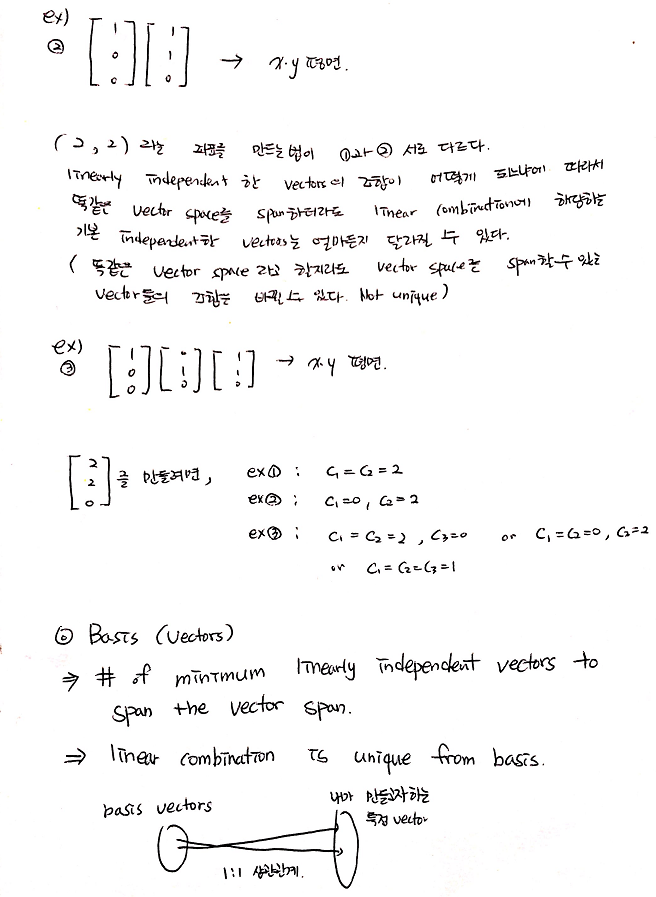 ex)
② [1 0 0] [1 1 0] → x·y 평면.
(2, 2) 라는 좌표를 만드는 법이 ①과 ② 서로 다르다.
linearly independent 한 vectors의 조합이 어떻게 되느냐에 따라서
똑같은 vector space를 span하더라도 linear combination에 해당하는
기본 independent한 vectors는 얼마든지 달라질 수 있다.
( 똑같은 vector space 라고 할지라도 vector space를 span할 수 있는
vector들의 조합은 바뀔 수 있다. Not unique )
ex)
③ [1 0 0] [0 1 0] [1 1 0] → x·y 평면.
[2 2 0] 를 만들려면, ex① : C₁=C₂=2
ex② : C₁=0, C₂=2
ex③ : C₁=C₂=2, C₃=0 or C₁=C₂=0, C₂=2
or C₁=C₂=C₃=1
◎ Basis (vectors)
⇒ # of minimum linearly independent vectors to
span the vector span.
⇒ linear combination is unique from basis.
basis vectors
내가 만들고자하는
특정 vector
1:1 상관관계.